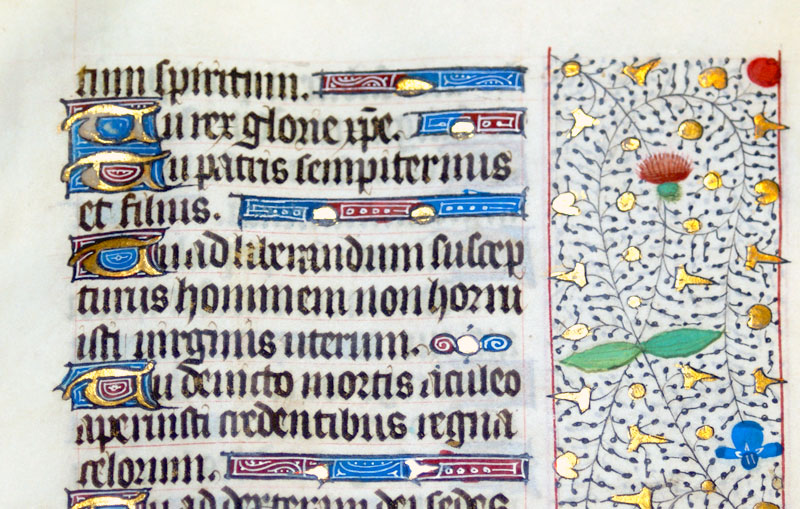 tum spiritum.
Tu rex glorie xp̄e.
Tu patris sempiternus
et filius.
Tu ad liberandum suscep
turus hominem non horru
isti virginis uterum.
Tu devicto mortis aculeo
aperuisti credentibus regna
celorum.
Tu ad dexteram dei sedes